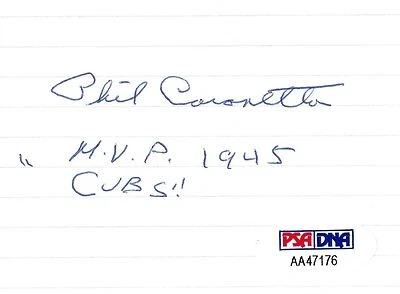 Phil Cavarretta
" M.V.P. 1945
CUBS"
PSA DNA
AA47176